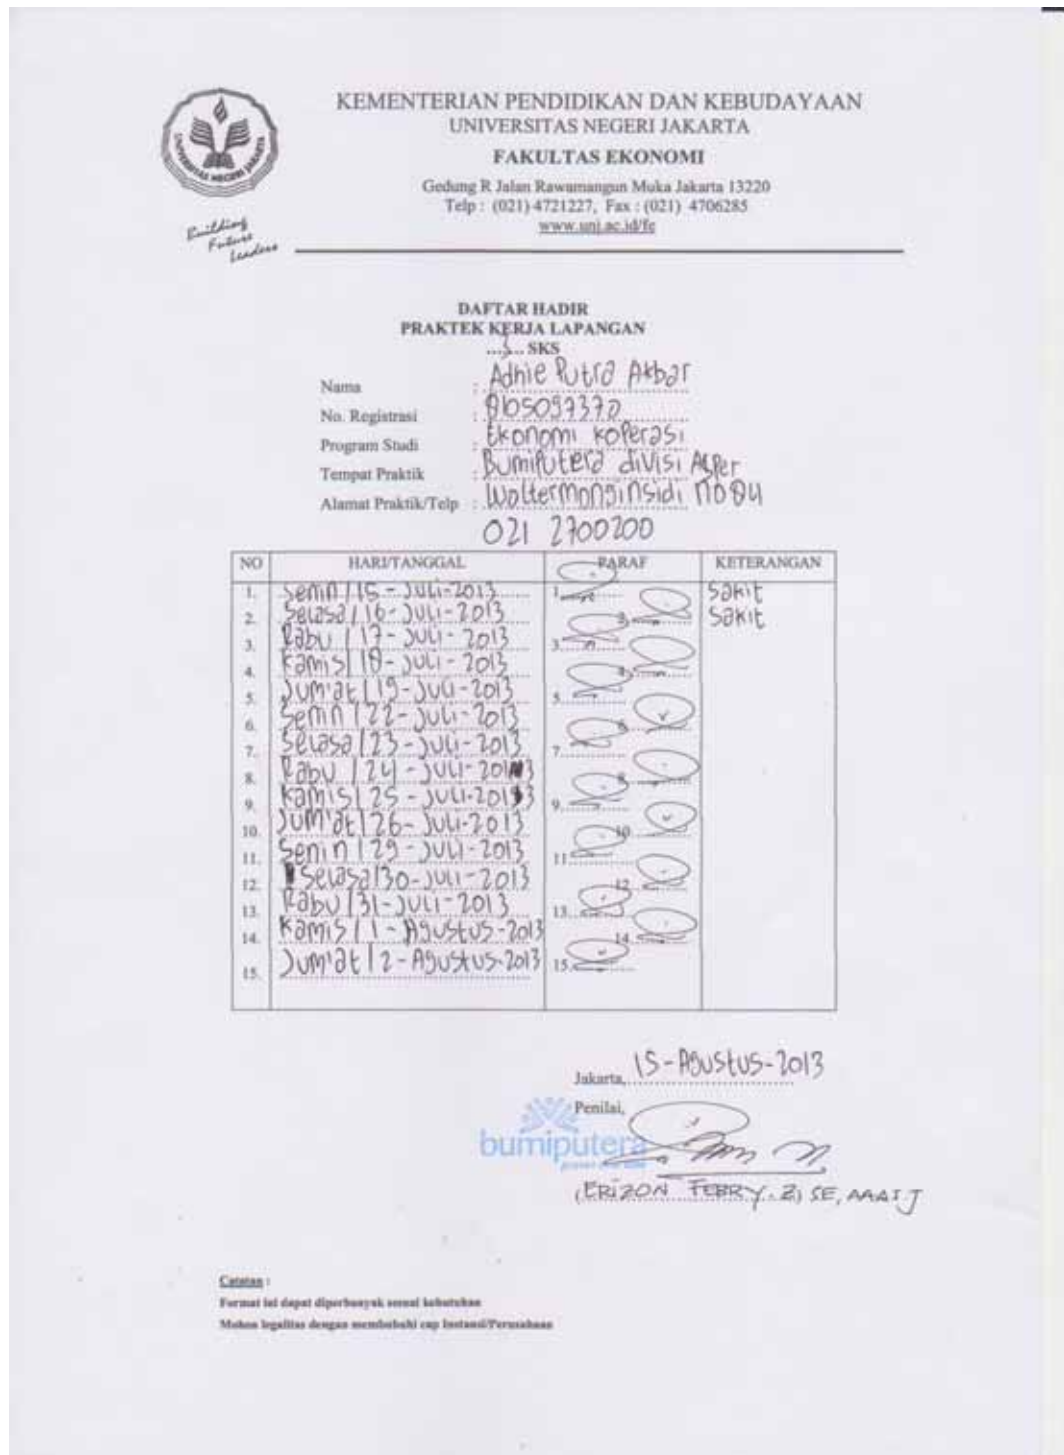 UNIVERSITAS NEGERI JAKARTA
Building
Future
Leaders
KEMENTERIAN PENDIDIKAN DAN KEBUDAYAAN
UNIVERSITAS NEGERI JAKARTA
FAKULTAS EKONOMI
Gedung R Jalan Rawamangun Muka Jakarta 13220
Telp : (021) 4721227, Fax : (021) 4706285
www.unj.ac.id/fe
DAFTAR HADIR
PRAKTEK KERJA LAPANGAN
...3... SKS
Nama : Adhie Putra Akbar
No. Registrasi : 8105097370
Program Studi : Ekonomi koperasi
Tempat Praktik : Bumiputera divisi Asper
Alamat Praktik/Telp : Woltermonginsidi no 84
021 2700200
NO HARI/TANGGAL PARAF KETERANGAN
1. Senin / 15 - Juli-2013 1. Sakit
2. Selasa / 16 - Juli - 2013 2. Sakit
3. Rabu / 17 - Juli - 2013 3.
4. Kamis / 18 - Juli - 2013 4.
5. Jum'at / 19 - Juli - 2013 5.
6. Senin / 22 - Juli - 2013 6.
7. Selasa / 23 - Juli - 2013 7.
8. Rabu / 24 - Juli - 2013 8.
9. Kamis / 25 - Juli-2013 9.
10. Jum'at / 26 - Juli-2013 10.
11. Senin / 29 - Juli - 2013 11.
12. Selasa / 30 - Juli - 2013 12.
13. Rabu / 31 - Juli - 2013 13.
14. Kamis / 1 - Agustus - 2013 14.
15. Jum'at / 2 - Agustus-2013 15.
Jakarta, 15-Agustus-2013
Penilai,
bumiputera
(ERIZON FEBRY. Z) SE, AAAIJ
Catatan :
Format ini dapat diperbanyak sesuai kebutuhan
Mohon legalitas dengan membubuhi cap Instansi/Perusahaan